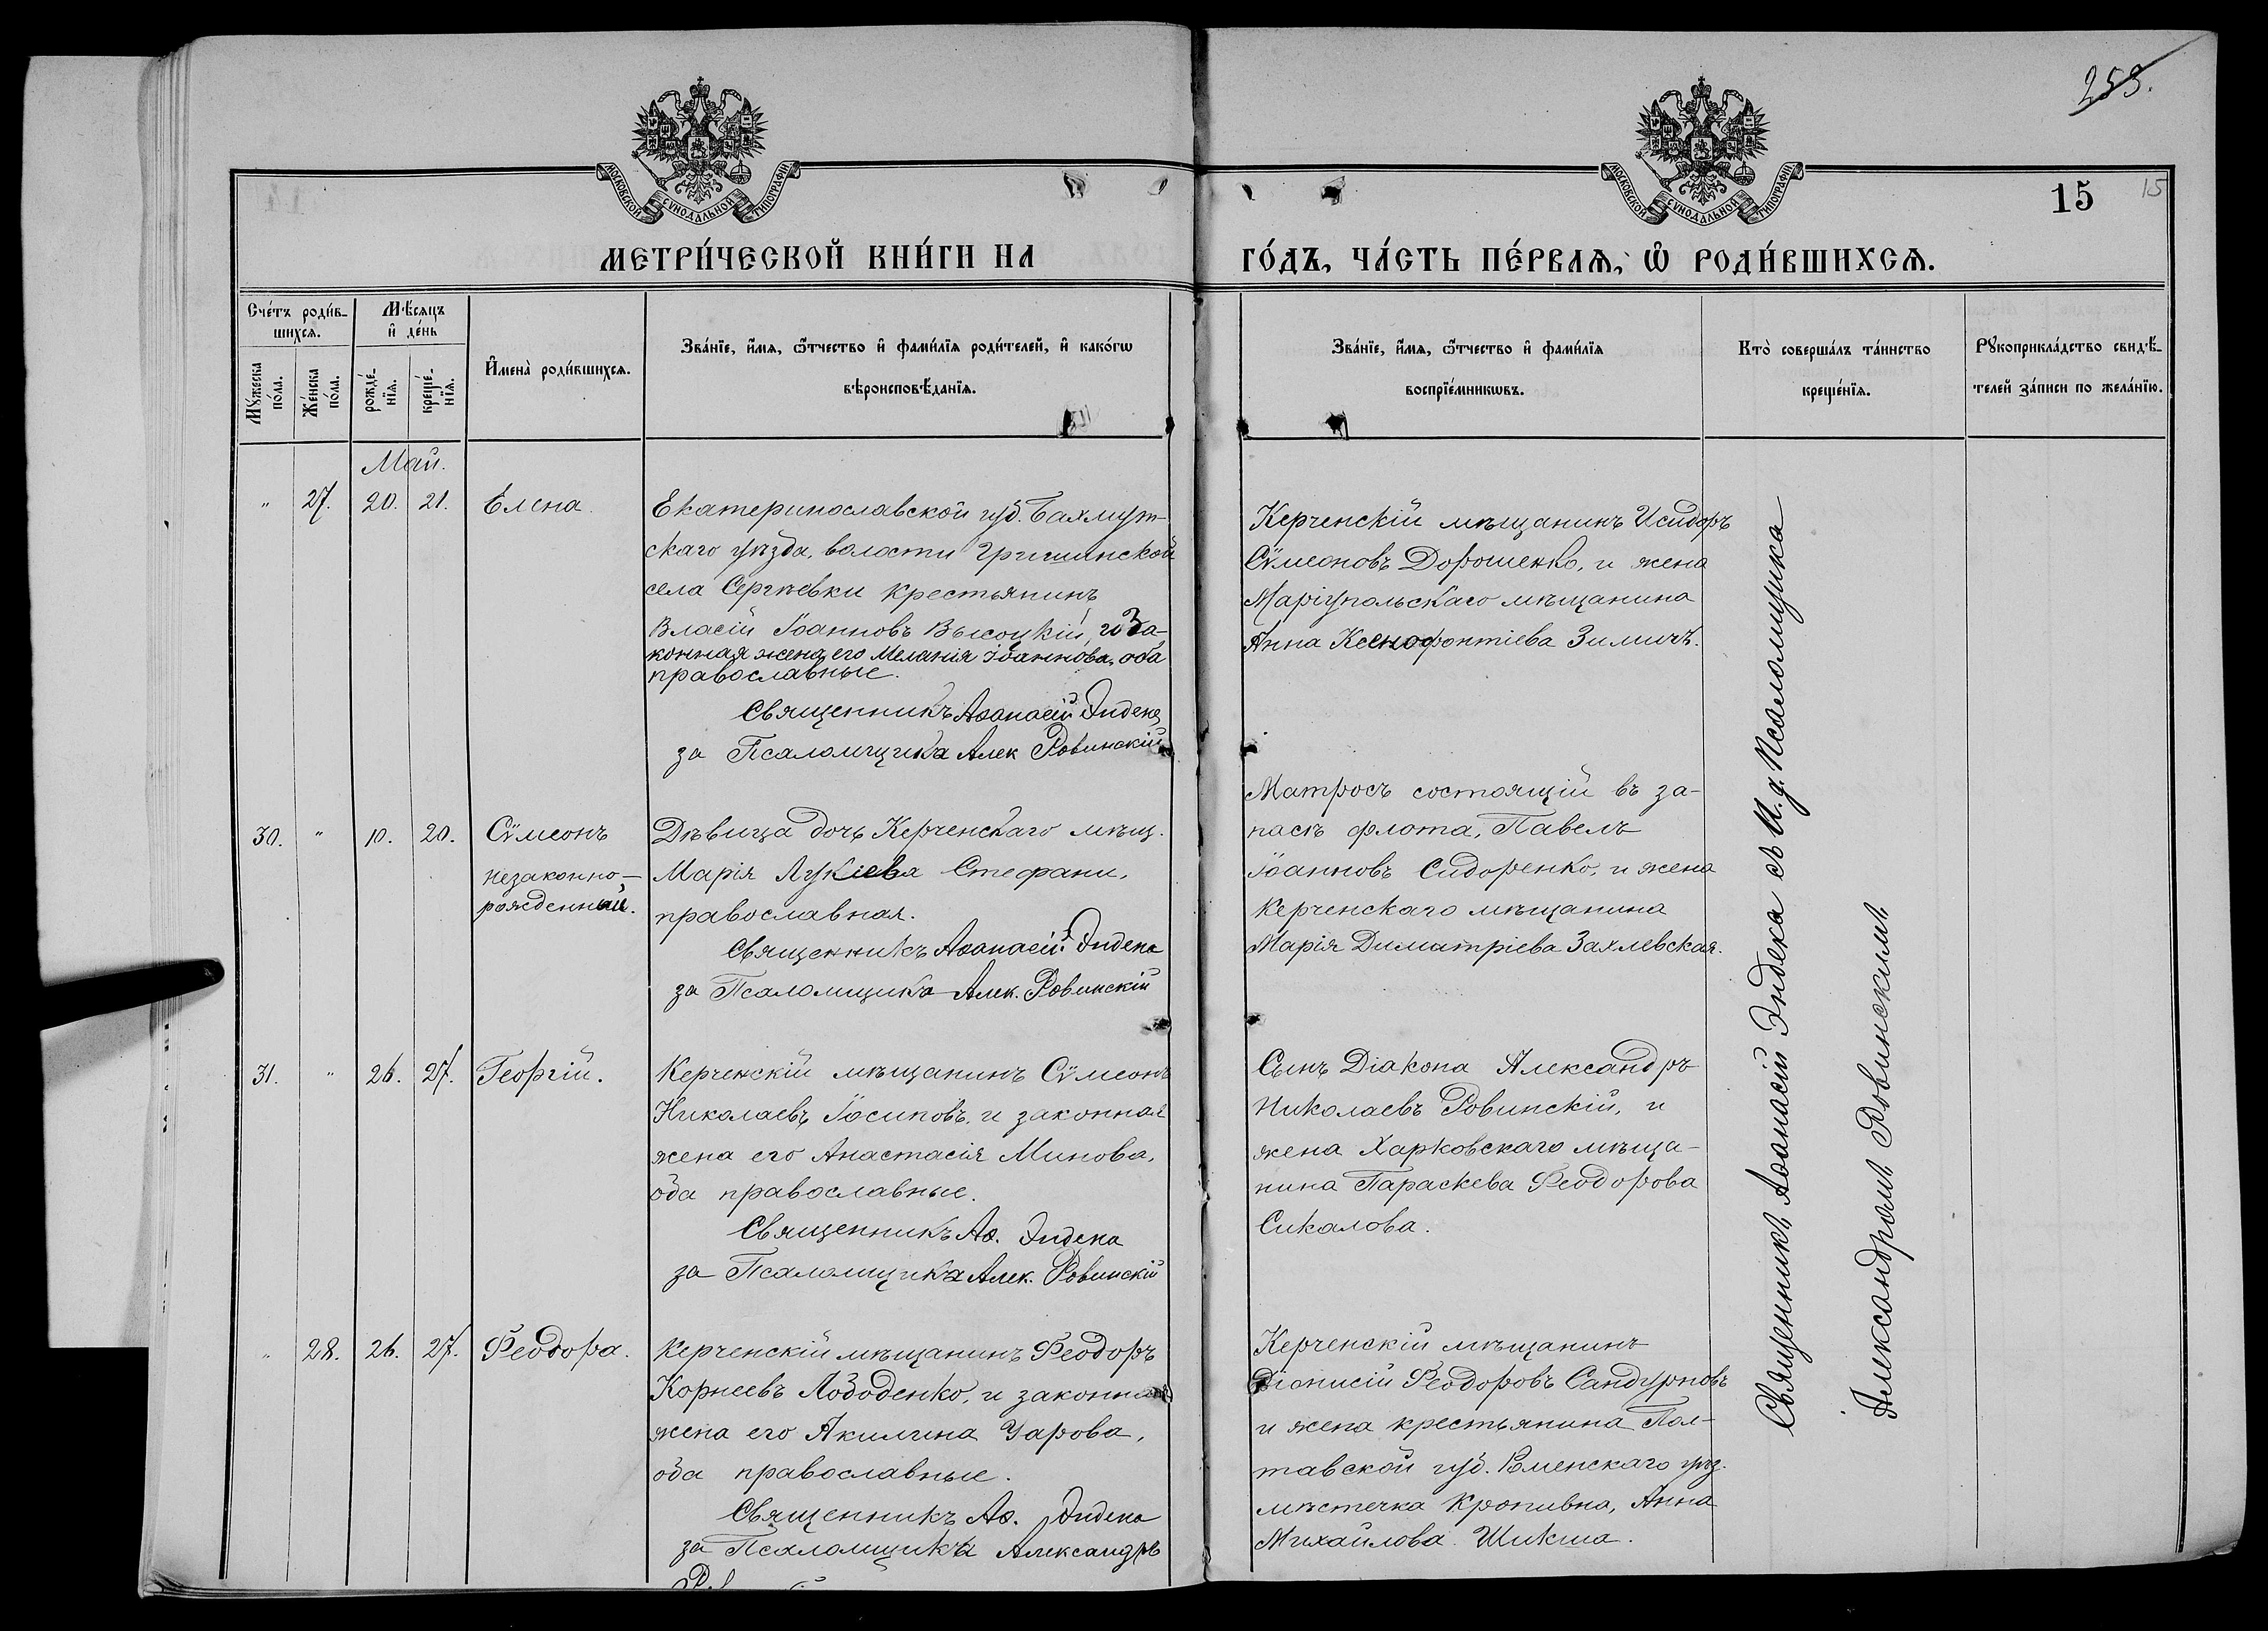 253.
МОСКОВСКОЙ СУНОДАЛЬНОЙ ТИПОГРАФІИ
МОСКОВСКОЙ СУНОДАЛЬНОЙ ТИПОГРАФІИ
15
15
МЕТРИ́ЧЕСКОЙ КНИ́ГИ НА
ГО́ДЪ, ЧА́СТЬ ПЕ́РВАѦ, Ѡ҆ РОДИ́ВШИХСѦ.
Сче́тъ роди́в-
шихсѧ.
Мꙋ́жеска по́ла.
Же́нска по́ла.
Мѣ́сяцъ
и҆ де́нь
рожде́-
нїѧ.
креще́-
нїѧ.
И҆мена̀ роди́вшихсѧ.
Зва́нїе, и҆́мѧ, ѻ҆́тчество и҆ фами́лїѧ роди́телей, и҆ како́гѡ
вѣроисповѣ́данїѧ.
Зва́нїе, и҆́мѧ, ѻ҆́тчество и҆ фами́лїѧ
воспрїе́мникѡвъ.
Кто̀ соверша́лъ та́инство
креще́нїѧ.
Рꙋкоприкла́дство свидѣ́-
телей за́писи по жела́нїю.
Май.
" 27. 20. 21. Елена.
Екатеринославской губ. Бахмут-
скаго уѣзда, волости Гришинской
села Сергѣевки крестьянинъ
Власій Іоанновъ Высоцкій, и за-
конная жена его Меланія Іоаннова, оба
православные.
Священникъ Аѳанасій Эндека
за Псаломщика Алек Ровинскій
Керченскій мѣщанинъ Исидоръ
Сѵмеоновъ Дорошенко, и жена
Маріупольскаго мѣщанина
Анна Ксенофонтіева Зимичъ.
30. " 10. 20. Сѵмеонъ
незаконно-
рожденный.
Дѣвица дочь Керченскаго мѣщ.
Марія Лукіева Стефани,
православная.
Священникъ Аѳанасій Эндека
за Псаломщика Алек. Ровинскій
Матросъ состоящій въ за-
пасѣ флота, Павелъ
Іоанновъ Сидоренко, и жена
Керченскаго мѣщанина
Марія Димитріева Захлевская.
31. " 26. 27. Георгій.
Керченскій мѣщанинъ Сѵмеонъ
Николаевъ Іосиповъ, и законная
жена его Анастасія Минова,
оба православные.
Священникъ Аѳ. Эндека
за Псаломщика Алек. Ровинскій
Сынъ Діакона Александръ
Николаевъ Ровинскій, и
жена Харьковскаго мѣща-
нина Параскева Ѳеодорова
Сикалова.
" 28. 26. 27. Ѳеодора.
Керченскій мѣщанинъ Ѳеодоръ
Корнеевъ Лободенко, и законная
жена его Акилина Уарова,
оба православные.
Священникъ Аѳ. Эндека
за Псаломщика Александръ
Керченскій мѣщанинъ
Діонисій Ѳеодоровъ Сандурновъ
и жена крестьянина Пол-
тавской губ. Роменскаго уѣз.
мѣстечка Кропивна, Анна
Михайлова Шикша.
Священникъ Аѳанасій Эндека съ И. д. Псаломщика
Александромъ Ровинскимъ